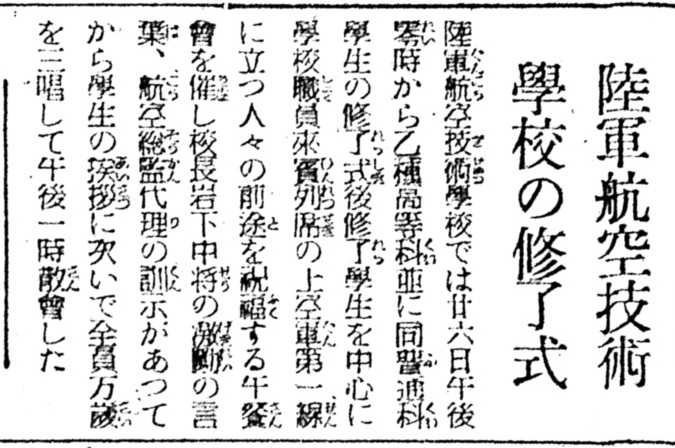 陸軍航空技術
學校の修了式
陸軍航空技術學校では廿六日午後
零時から乙種高等科並に同普通科
學生の修了式後修了學生を中心に
學校職員來賓列席の上空軍第一線
に立つ人々の前途を祝福する午餐
會を催し校長岩下中将の激勵の言
葉、航空総監代理の訓示があつて
から學生の挨拶に次いで全員万歲
を三唱して午後一時散會した